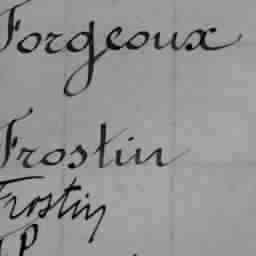 Forgeoux
Frostin
Frostin